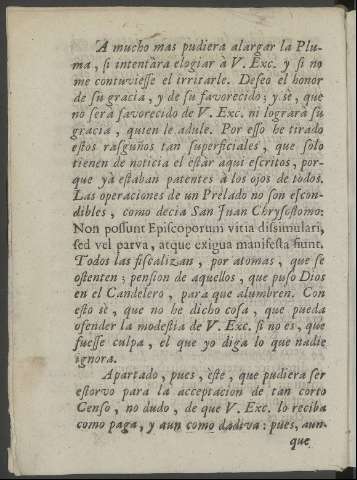 A mucho mas pudiera alargar la Plu-
ma, ſi intentàra elogiar à V. Exc. y ſi no
me contuvieſſe el irritarle. Deſeo el honor
de ſu gracia, y de ſu favorecido; y sè, que
no ſerà favorecido de V. Exc. ni lograrà ſu
gracia, quien le adule. Por eſſo he tirado
eſtos raſguños tan ſuperficiales, que ſolo
tienen de noticia el eſtàr aqui eſcritos, por-
que yà eſtaban patentes à los ojos de todos.
Las operaciones de un Prelado no ſon eſcon-
dibles, como decia San Juan Chryſoſtomo:
Non poſſunt Epiſcoporum vitia diſsimulari,
ſed vel parva, atque exigua manifeſta fiunt.
Todos las fiſcalizan, por atomas, que ſe
oſtenten; penſion de aquellos, que puſo Dios
en el Candelero, para que alumbren. Con
eſto sè, que no he dicho coſa, que pueda
ofender la modeſtia de V. Exc. ſi no es, que
fueſſe culpa, el que yo diga lo que nadie
ignora.
Apartado, pues, èſte, que pudiera ſer
eſtorvo para la acceptacion de tan corto
Cenſo, no dudo, de que V. Exc. lo reciba
como paga, y aun como dadiva: pues, aun-
que